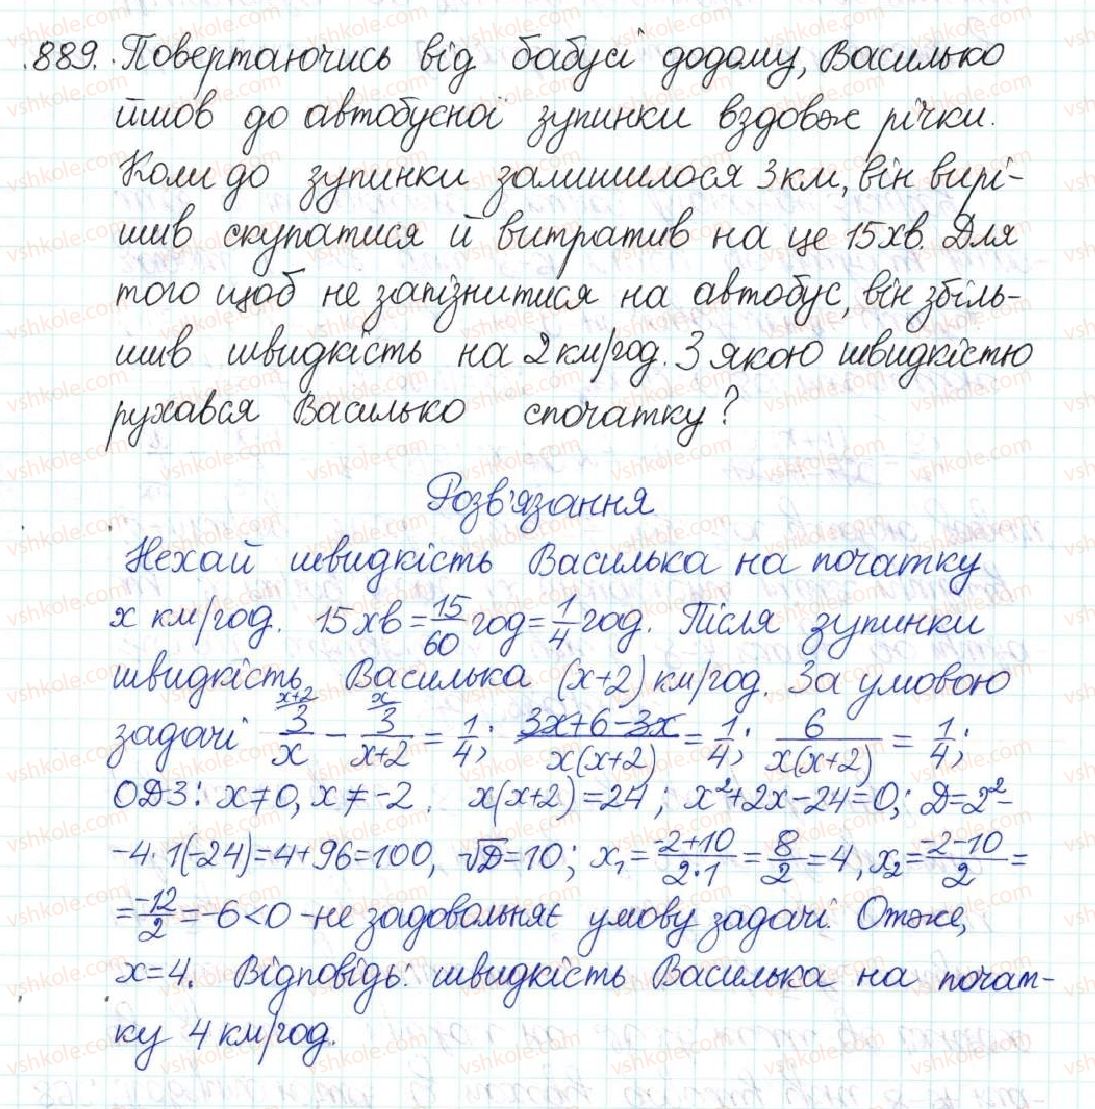 889. Повертаючись від бабусі додому, Василько
йшов до автобусної зупинки вздовж річки.
Коли до зупинки залишилося 3 км, він вирі-
шив скупатися й витратив на це 15 хв. Для
того щоб не запізнитися на автобус, він збіль-
шив швидкість на 2 км/год. З якою швидкістю
рухався Василько спочатку?
Розв'язання
Нехай швидкість Василька на початку
x км/год. 15 хв = 15/60 год = 1/4 год. Після зупинки
швидкість Василька (x+2) км/год. За умовою
задачі 3/x (x+2) − 3/(x+2) (x) = 1/4; (3x+6−3x)/(x(x+2)) = 1/4; 6/(x(x+2)) = 1/4;
ОДЗ: x≠0, x≠−2. x(x+2)=24; x²+2x−24=0; D=2²−
−4·1(−24)=4+96=100, √D=10; x₁=(−2+10)/(2·1)=8/2=4, x₂=(−2−10)/2=
=−12/2=−6<0 - не задовольняє умову задачі. Отже,
x=4. Відповідь: швидкість Василька на почат-
ку 4 км/год.